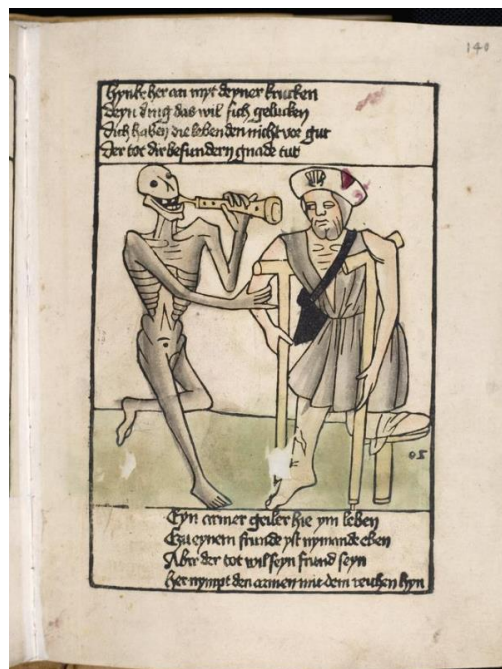 140
hynk her an myt deyner krucken
Deyn ding das wil sich gelucken
Dich haben die lebenden nicht vor gut
Der tot dir besundern gnade tut
Eyn armer geiler hie ym leben
Czu eynem frunde yst nymande eben
Aber der tot wil seyn frund seyn
her nympt den armen mit dem reichen hyn